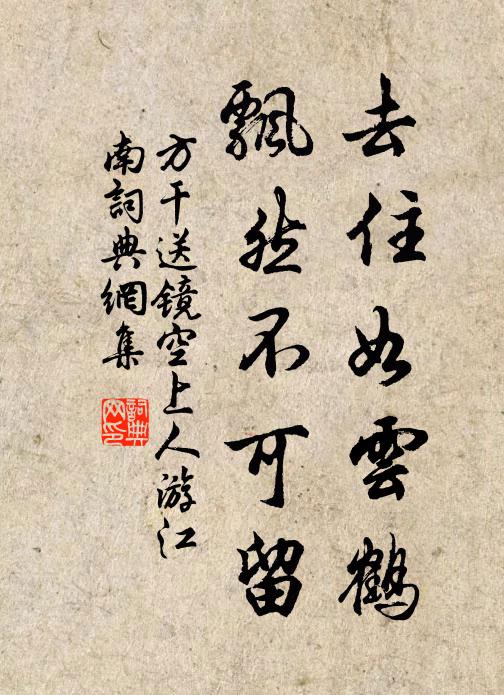 去住如雲鶴
飄然不可留
方干送镜空上人游江
南詞典網集
詞典
网印